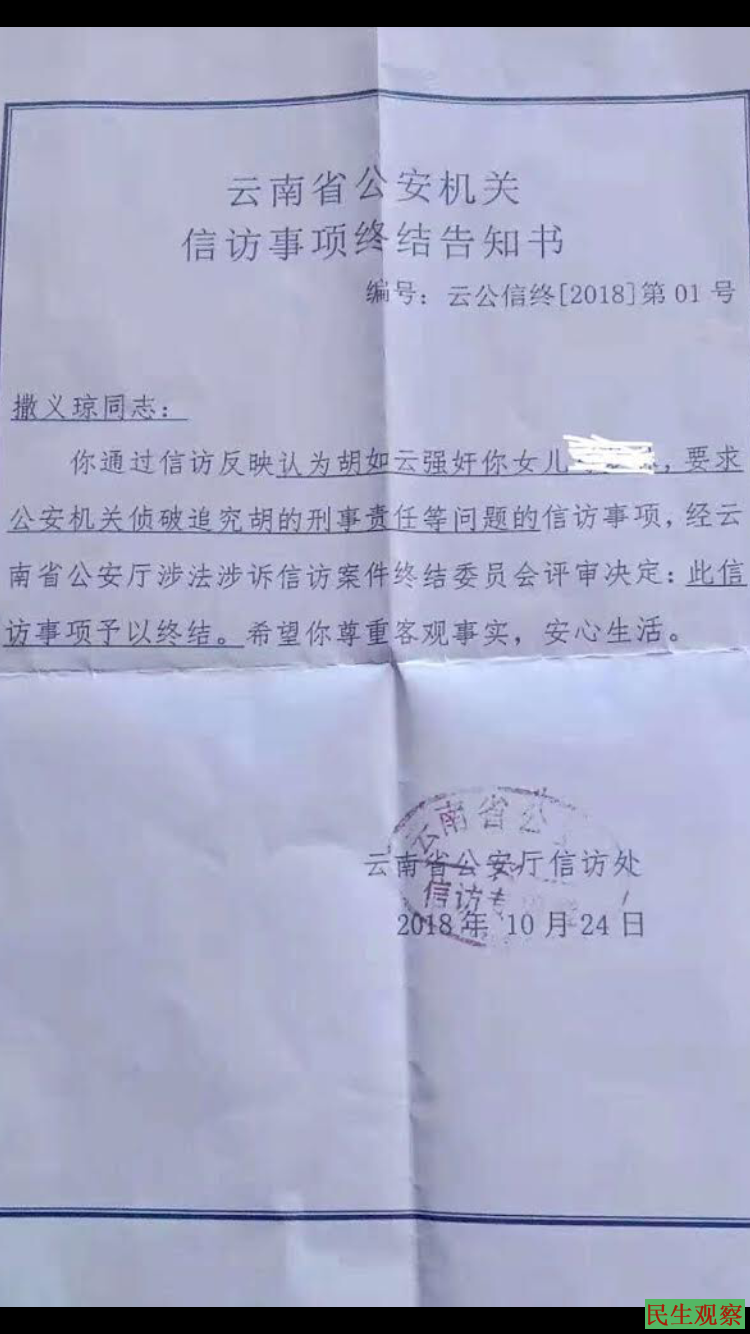 云南省公安机关
信访事项终结告知书
编号：云公信终[2018]第 01 号
撒义琼同志：
你通过信访反映认为胡如云强奸你女儿，要求
公安机关侦破追究胡的刑事责任等问题的信访事项，经云
南省公安厅涉法涉诉信访案件终结委员会评审决定：此信
访事项予以终结。希望你尊重客观事实，安心生活。
云南省公
云南省公安厅信访处
信访专
2018 年 10 月 24 日
民生观察